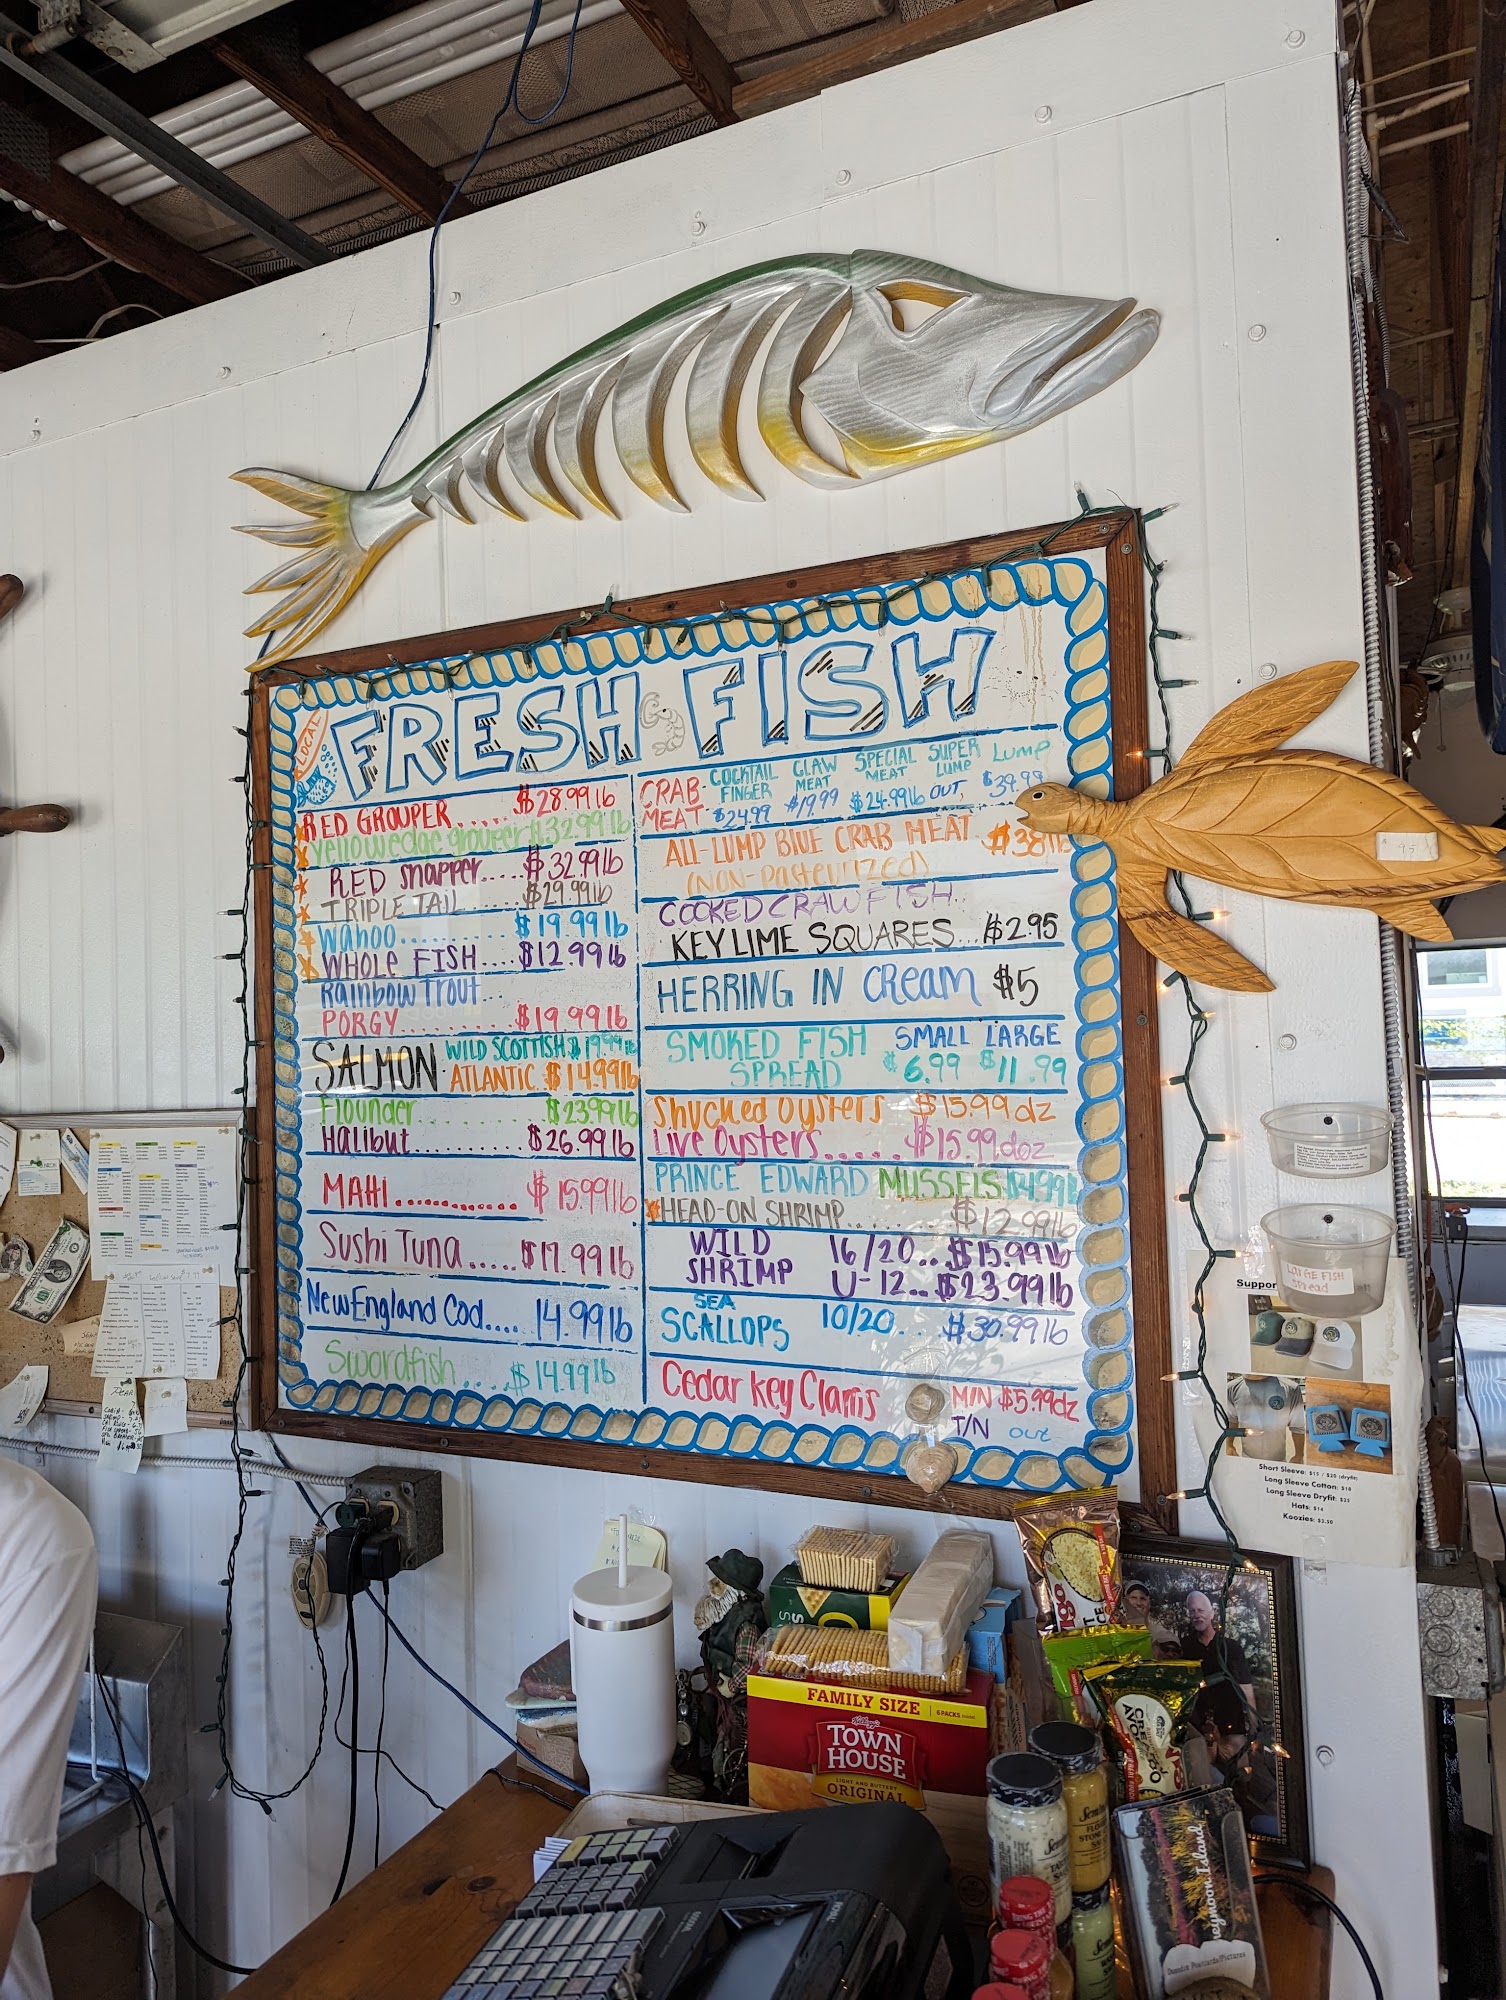 FRESH FISH
LOCAL
RED GROUPER..... $28.99lb
Yellowedge grouper $32.99lb
RED snapper..... $32.99lb
TRIPLE TAIL....... $29.99lb
Wahoo.......... $19.99lb
WHOLE FISH.... $12.99lb
Rainbow Trout...
PORGY.......... $19.99lb
SALMON WILD SCOTTISH $19.99lb
ATLANTIC. $14.99lb
Flounder........ $23.99lb
Halibut......... $26.99lb
MAHI............. $15.99lb
Sushi Tuna..... $17.99lb
New England Cod.... 14.99lb
Swordfish.... $14.99lb
CRAB MEAT
COCKTAIL FINGER $24.99
CLAW MEAT $19.99
SPECIAL MEAT $24.99lb
SUPER LUMP OUT,
Lump $39.99
ALL-LUMP BLUE CRAB MEAT $38lb
(NON-Pasteurized)
COOKED CRAWFISH..
KEY LIME SQUARES... $2.95
HERRING IN CREAM $5
SMOKED FISH SMALL LARGE
SPREAD $6.99 $11.99
Shucked Oysters $15.99 dz
Live Oysters..... $15.99 doz
PRINCE EDWARD MUSSELS $4.99lb
HEAD-ON SHRIMP....... $12.99lb
WILD 16/20.. $15.99lb
SHRIMP U-12.. $23.99lb
SEA
SCALLOPS 10/20.. $30.99lb
Cedar Key Clams M/N $5.99dz
T/N out
95
LARGE FISH
Spread
Suppor
Short Sleeve: $15 / $20 (dryfit)
Long Sleeve Cotton: $18
Long Sleeve Dryfit: $25
Hats: $14
Koozies: $3.50
FAMILY SIZE
6 PACKS
Kellogg's
TOWN
HOUSE
LIGHT AND BUTTERY
ORIGINAL
Honeymoon Island